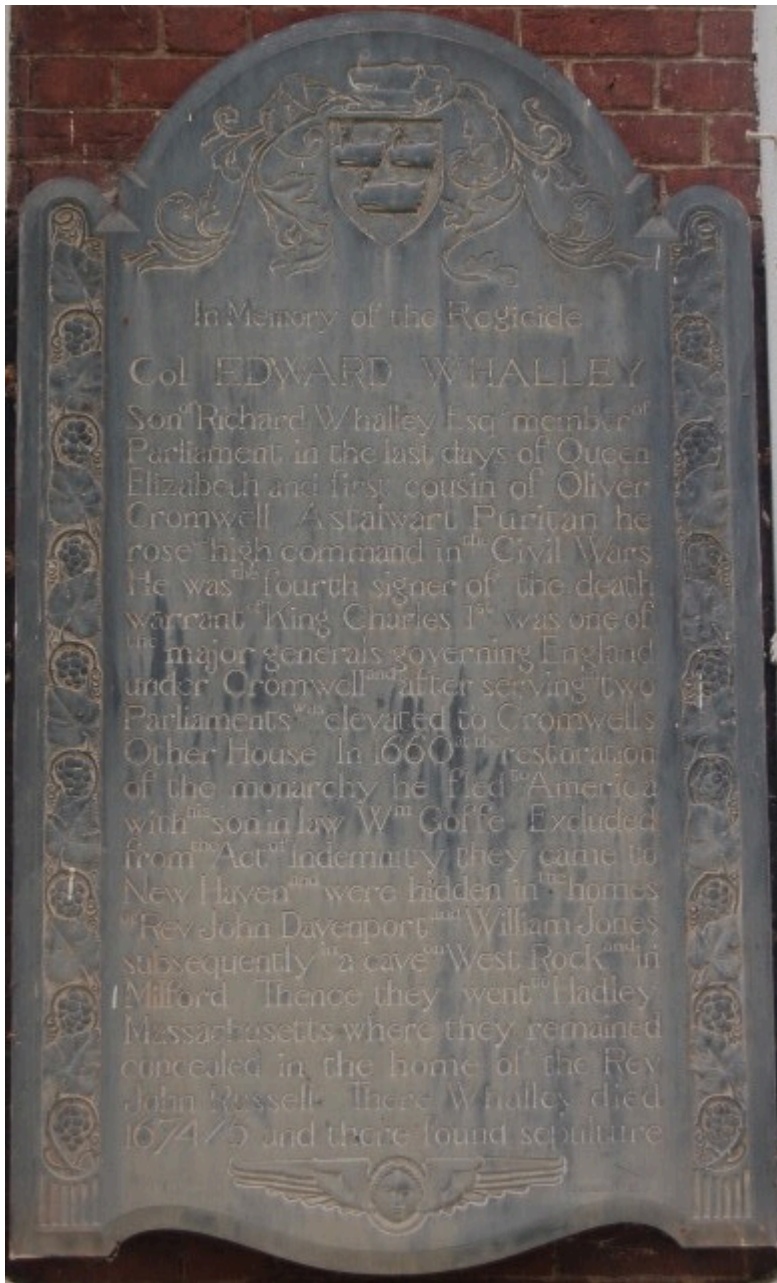 In Memory of the Regicide
Col EDWARD WHALLEY
Son of Richard Whalley Esq member of
Parliament in the last days of Queen
Elizabeth and first cousin of Oliver
Cromwell A stalwart Puritan he
rose to high command in the Civil Wars
He was the fourth signer of the death
warrant of King Charles Ist was one of
the major generals governing England
under Cromwell and after serving two
Parliaments was elevated to Cromwells
Other House In 1660 at the restoration
of the monarchy he fled to America
with his son in law Wm Goffe Excluded
from the Act of Indemnity they came to
New Haven and were hidden in the homes
of Rev John Davenport and William Jones
subsequently in a cave on West Rock and in
Milford Thence they went to Hadley
Massachusetts where they remained
concealed in the home of the Rev
John Russell There Whalley died
1674/5 and there found sepulture